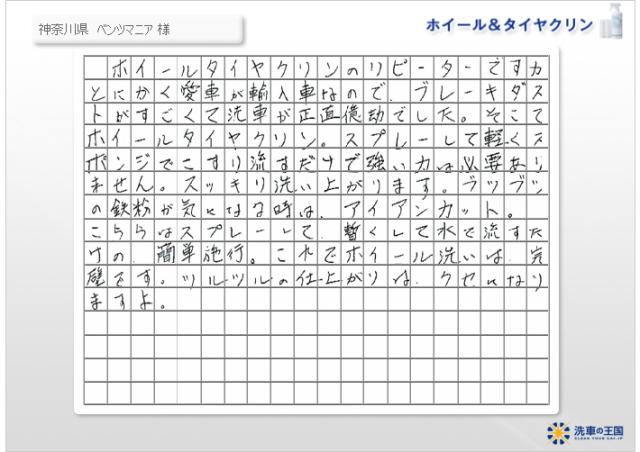 神奈川県 ベンツマニア 様
ホイール&タイヤクリン
ホイールタイヤクリンのリピーターですが
とにかく愛車が輸入車なので、ブレーキダス
トがすごくて洗車が正直億劫でした。そこで
ホイールタイヤクリン。スプレーして軽くス
ポンジでこすり流すだけで強い力は必要あり
ません。スッキリ洗い上がります。ブツブツ
の鉄粉が気になる時は、アイアンカット。
こちらはスプレーして、暫くして水で流すだ
けの、簡単施行。これでホイール洗いは、完
璧です。ツルツルの仕上がりは、クセになり
ますよ。
洗車の王国
CLEAN YOUR CAR.JP